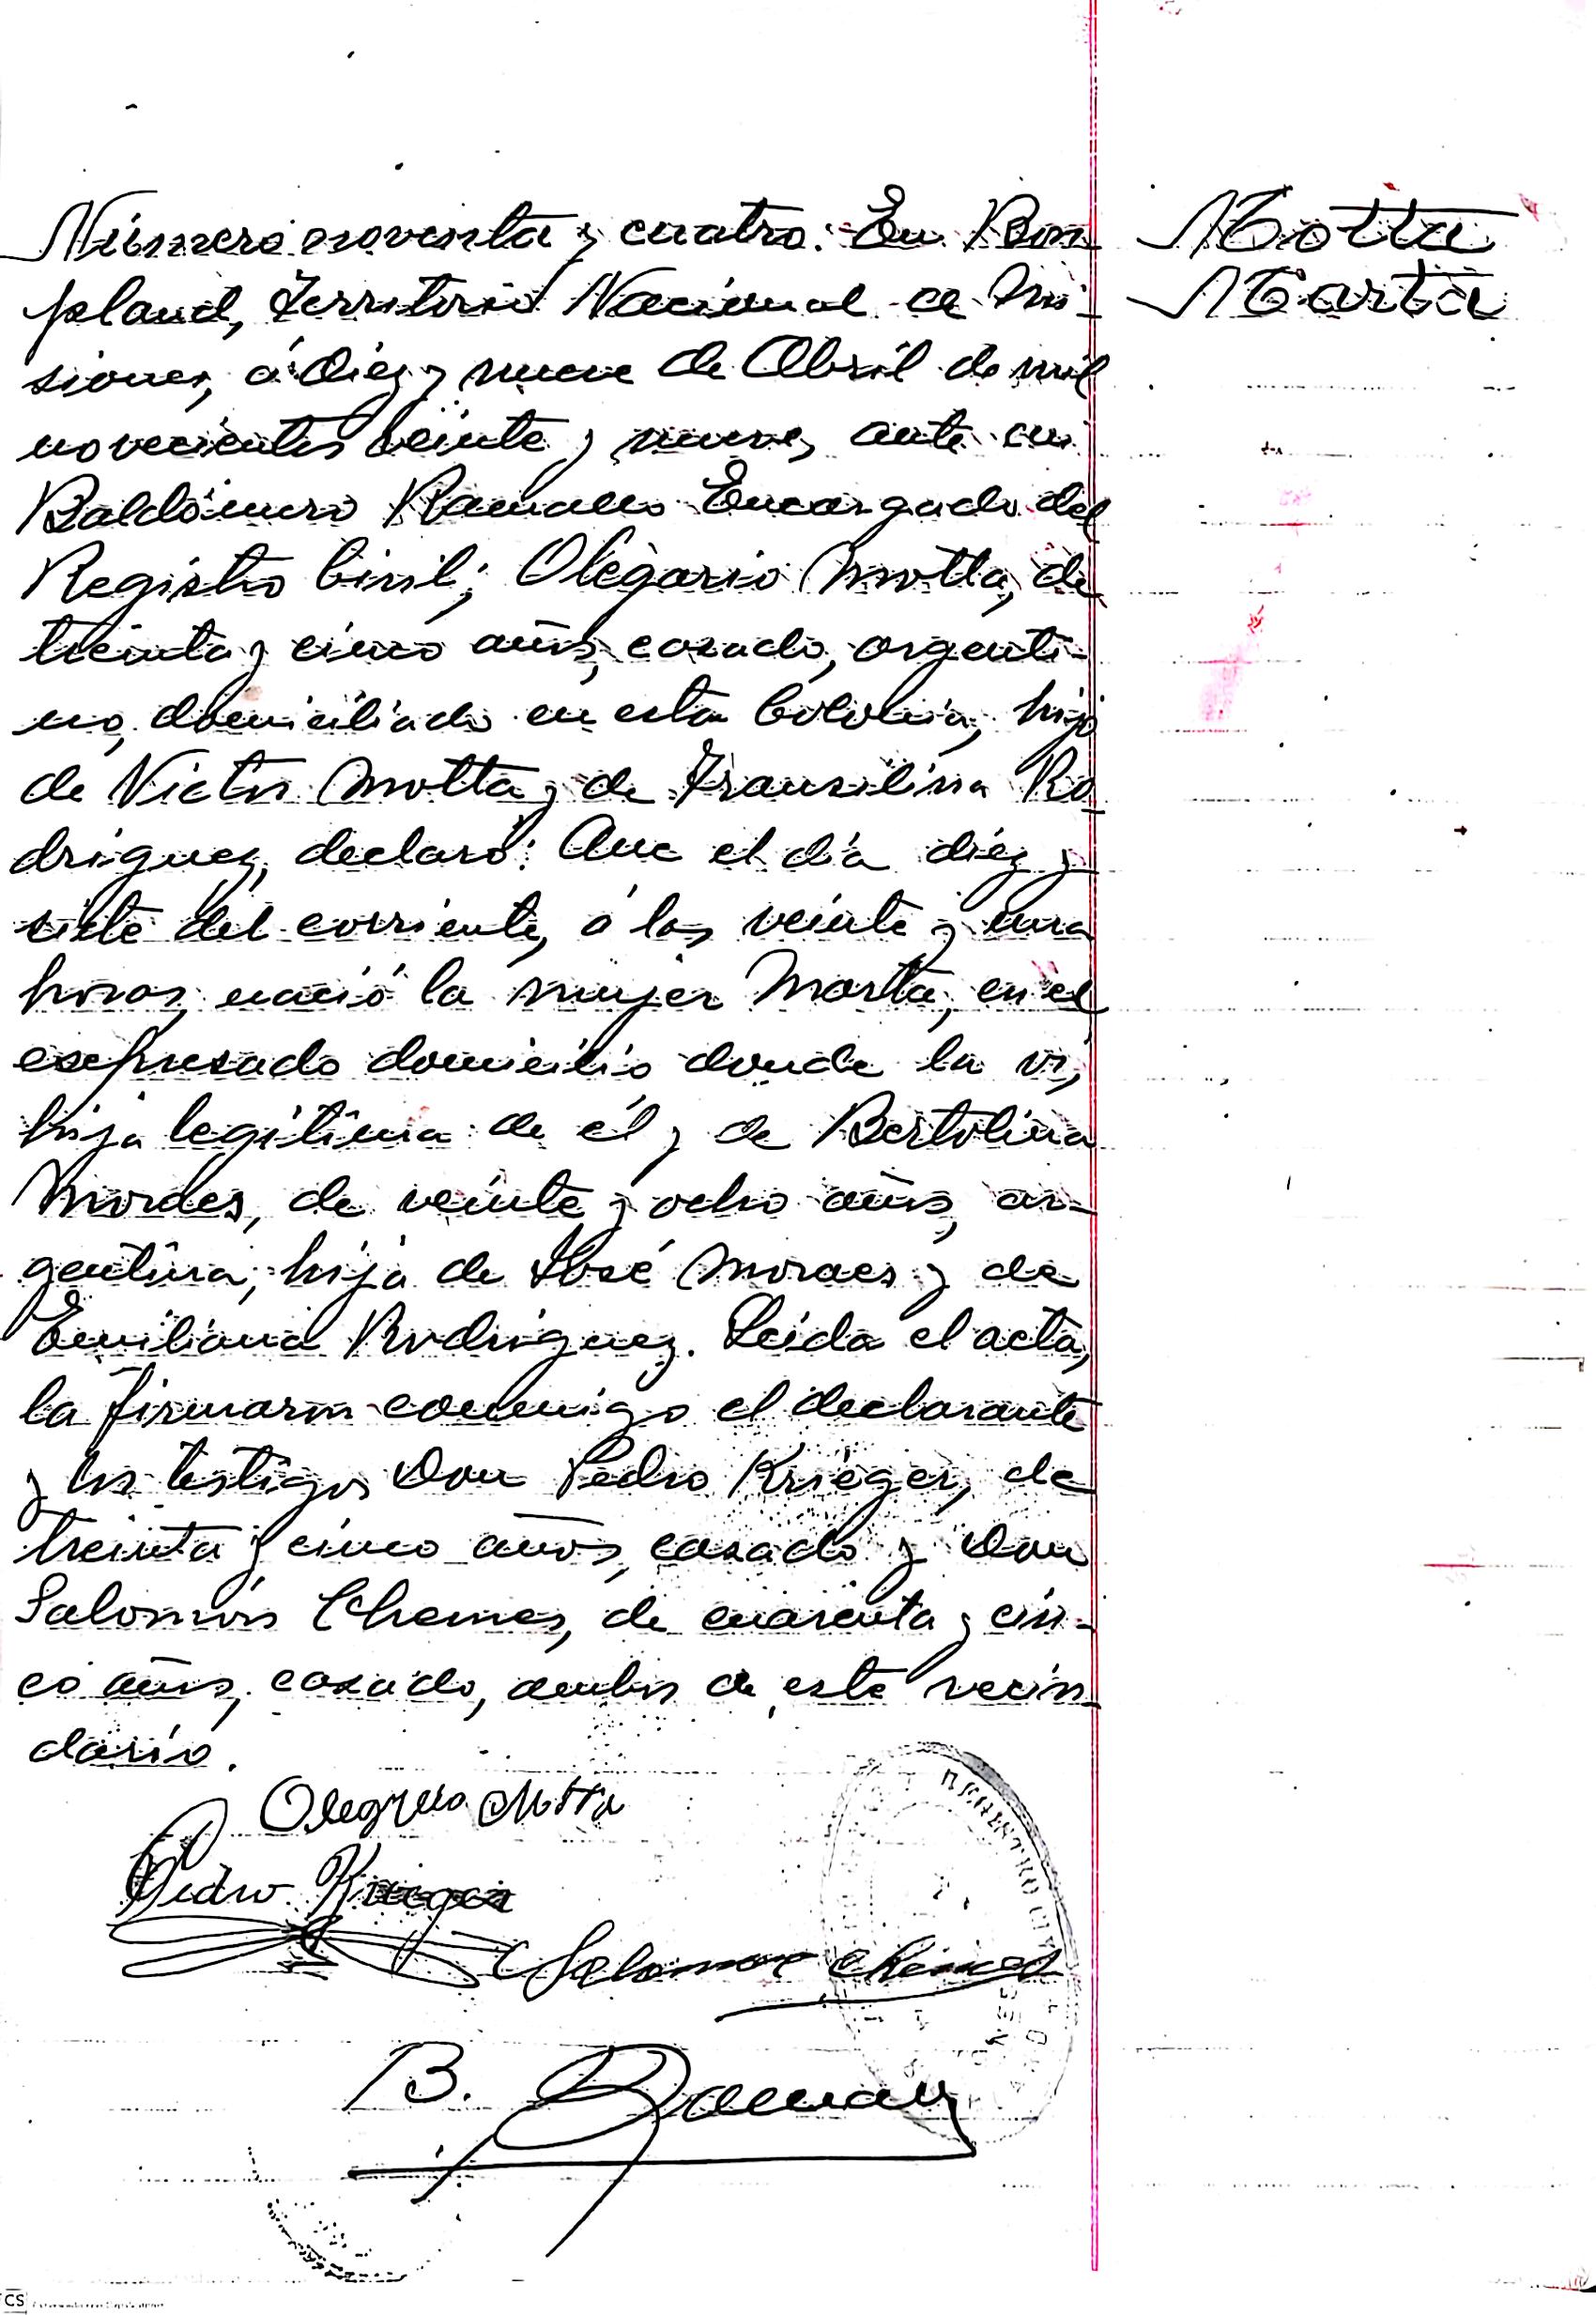 Número noventa y cuatro. En Bon
pland, Territorio Nacional de Mi-
siones, á diez y nueve de Abril de mil
novecientos veinte y nueve, ante mi
Baldomero Encargado del
Registro Civil; Olegario Motta, de
treinta y cinco años, casado, argenti-
no, domiciliado en esta Colonia, hijo
de Victor Motta y de Fransilina Ro
driguez, declaró: Que el día diéz y
siete del corriente, á las veinte y una
horas, nació la mujer Marta, en el
expresado domicilio donde la vi,
hija legitima de él y de Bertolina
Moraes, de veinte y ocho años, ar-
gentina, hija de José Moraes y de
Emiliana Rodriguez. Leida el acta,
la firmaron conmigo el declarante
y los testigos Don Pedro Krieger, de
treinta y cinco años, casado y Don
Salomón Chemes, de cuarenta y cin-
co años, casado, ambos de este vecin
dario.
Motta
Marta
Olegario Motta
Pedro Krieger
Salomon Chemes
B.
CS